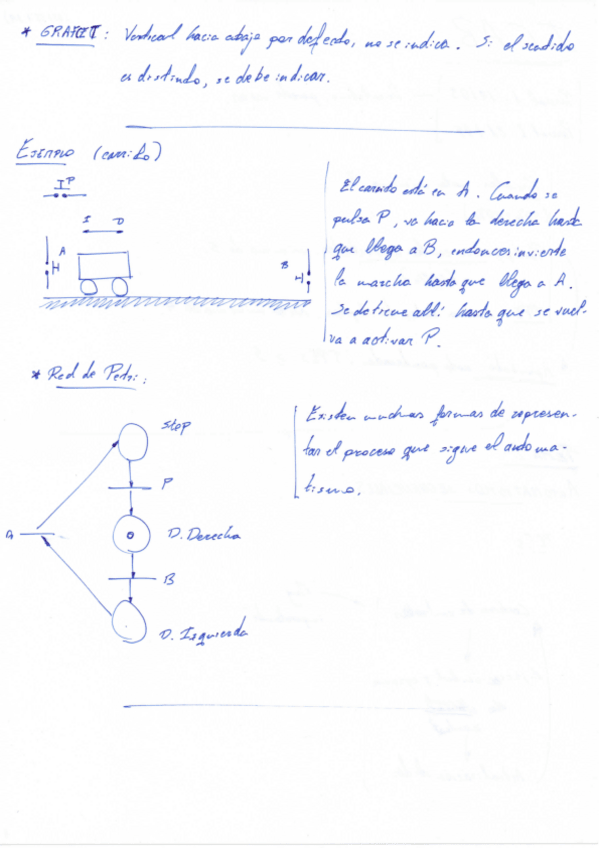 * GRAFCET: Vertical hacia abajo por defecto, no se indica. Si el sentido
es distinto, se debe indicar.
EJEMPLO (carrito)
P
I D
A
B
El carrito está en A. Cuando se
pulsa P, va hacia la derecha hasta
que llega a B, entonces invierte
la marcha hasta que llega a A.
Se detiene allí hasta que se vuel-
va a activar P.
* Red de Petri:
Stop
P
A
D. Derecha
B
D. Izquierda
Existen muchas formas de represen-
tar el proceso que sigue el automa-
tismo.